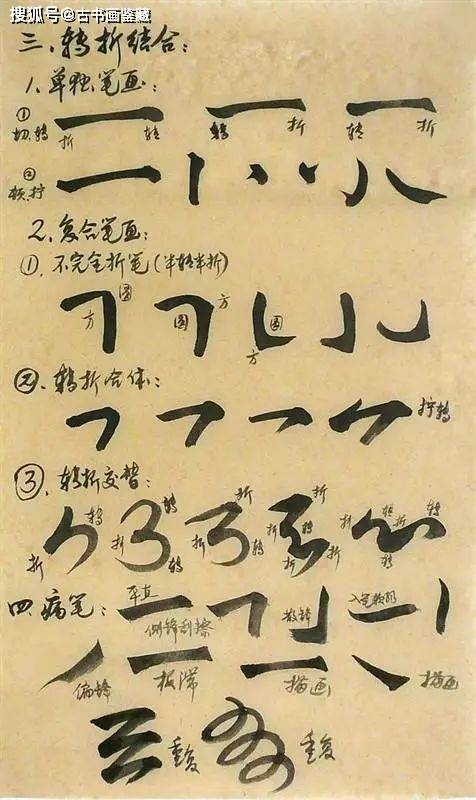 搜狐号@古书画鉴藏
三、转折结合:
1.单独笔画:
① 切、转
折 转 转 折 转 折
② 顿、拧
2.复合笔画:
①.不完全折笔(半转半折)
方 圆 圆 方 方 圆
②.转折合体:
拧转
③.转折交替:
折 转 折 转 转 折 折 转 折 折 转 折 折 折 转 折 转 转
四.病笔:
平直
侧锋刮擦 散锋 入笔
偏锋 板滞 描画 描画
重复 重复